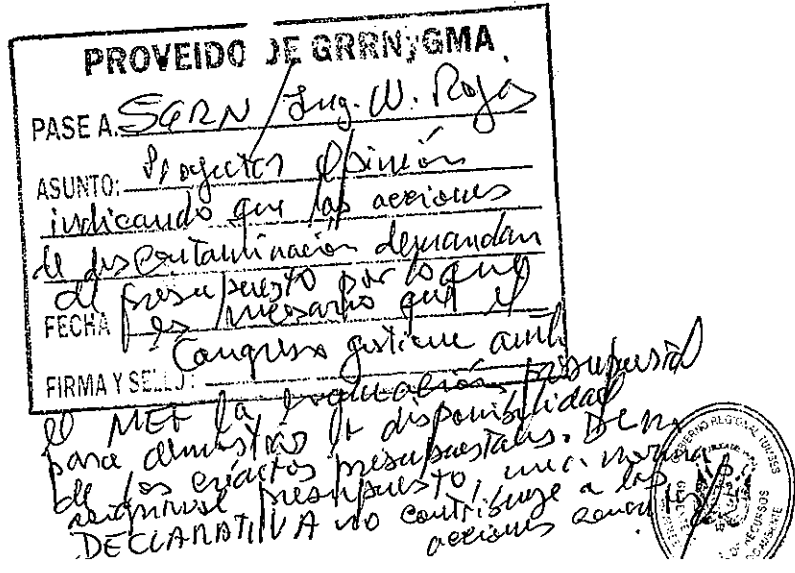 PROVEIDO DE GRRNyGMA
PASE A. SGRN Ing. W. Rojas
ASUNTO: Proyectar Opinión
indicando que las acciones
de descontaminación demandan
de presupuesto por lo que
FECHA es necesario que el
Congreso gestione ante
FIRMA Y SELLO:
el MEF la evaluación presupuestal
para demostrar la disponibilidad
de los créditos presupuestales. De no
asignarse presupuesto, una norma
DECLARATIVA no contribuye a las
acciones
GOBIERNO REGIONAL TUMBES
RECURSOS